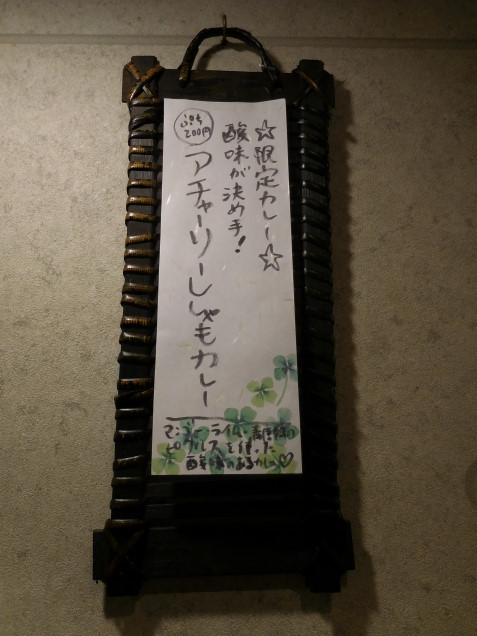 ☆限定カレー☆
酸味が決め手！
ぷち
200円
アチャーリーししゃもカレー
マンゴー ライム 青唐辛子の
ピクルスを使った
酸味のあるカレー♡